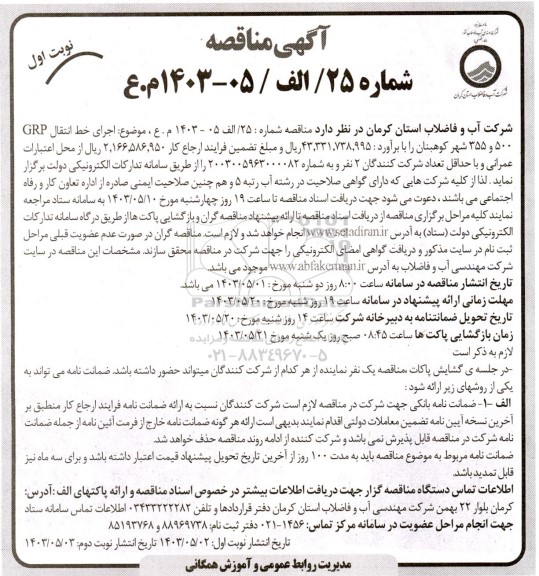 آگهی مناقصه
نوبت اول
شماره ۲۵/ الف / ۰۵-۱۴۰۳م.ع
شرکت آب و فاضلاب استان کرمان
شرکت آب و فاضلاب استان کرمان در نظر دارد مناقصه شماره : ۲۵/ الف ۰۵ - ۱۴۰۳ م . ع ، موضوع: اجرای خط انتقال GRP
۵۰۰ و ۳۵۵ شهر کوهبنان را با برآورد : ۴۳,۳۳۱,۷۳۸,۹۹۵ریال و مبلغ تضمین فرایند ارجاع کار ۲,۱۶۶,۵۸۶,۹۵۰ ریال از محل اعتبارات
عمرانی و با حداقل تعداد شرکت کنندگان ۲ نفر و به شماره ۲۰۰۳۰۰۵۹۶۳۰۰۰۰۸۲ را از طریق سامانه تدارکات الکترونیکی دولت برگزار
نماید . لذا از کلیه شرکت هایی که دارای گواهی صلاحیت در رشته آب رتبه ۵ و هم چنین صلاحیت ایمنی صادره از اداره تعاون کار و رفاه
اجتماعی می باشند ، دعوت می شود جهت دریافت اسناد مناقصه تا ساعت ۱۹ روز چهارشنبه مورخ ۱۴۰۳/۰۵/۱۰ به سامانه ستاد مراجعه
نمایند کلیه مراحل برگزاری مناقصه از دریافت اسناد مناقصه تا ارائه پیشنهاد مناقصه گران و بازگشایی پاکت ها از طریق درگاه سامانه تدارکات
الکترونیکی دولت (ستاد) به آدرس www.setadiran.ir انجام خواهد شد و لازم است، مناقصه گران در صورت عدم عضویت قبلی مراحل
ثبت نام در سایت مذکور و دریافت گواهی امضای الکترونیکی را جهت شرکت در مناقصه محقق سازند. مشخصات این مناقصه در سایت
شرکت مهندسی آب و فاضلاب به آدرس www.abfakerman.ir موجود می باشد.
تاریخ انتشار مناقصه در سامانه ساعت ۸:۰۰ روز دو شنبه مورخ : ۱۴۰۳/۰۵/۰۱ می باشد.
مهلت زمانی ارائه پیشنهاد در سامانه ساعت ۱۹ روز شنبه مورخ : ۱۴۰۳/۰۵/۲۰
تاریخ تحویل ضمانتنامه به دبیرخانه شرکت ساعت ۱۴ روز شنبه مورخ : ۱۴۰۳/۰۵/۲۰
زمان بازگشایی پاکت ها ساعت ۰۸:۴۵ صبح روز یک شنبه مورخ ۱۴۰۳/۰۵/۲۱
۰۲۱-۸۸۳۴۹۶۷۰-۵
لازم به ذکر است
-در جلسه ی گشایش پاکات ،مناقصه یک نفر نماینده از هر کدام از شرکت کنندگان میتواند حضور داشته باشد. ضمانت نامه می تواند به
یکی از روشهای زیر ارائه شود :
الف -۱- ضمانت نامه بانکی جهت شرکت در مناقصه لازم است شرکت کنندگان نسبت به ارائه ضمانت نامه فرایند ارجاع کار منطبق بر
آخرین نسخه آیین نامه تضمین معاملات دولتی اقدام نمایند بدیهی است ارائه هر گونه ضمانت نامه خارج از فرمت آئین نامه از جمله ضمانت
نامه شرکت در مناقصه قابل پذیرش نمی باشد و شرکت کننده از ادامه روند مناقصه حذف خواهد شد.
ضمانت نامه مربوط به موضوع مناقصه باید به مدت ۱۰۰ روز از آخرین تاریخ تحویل پیشنهاد قیمت اعتبار داشته باشد و برای سه ماه نیز
قابل تمدیدباشد.
اطلاعات تماس دستگاه مناقصه گزار جهت دریافت اطلاعات بیشتر در خصوص اسناد مناقصه و ارائه پاکتهای الف :آدرس:
کرمان بلوار ۲۲ بهمن شرکت مهندسی آب و فاضلاب استان کرمان دفتر قراردادها و تلفن ۰۳۴۳۳۲۲۲۲۸۲ اطلاعات تماس سامانه ستاد
جهت انجام مراحل عضویت در سامانه مرکز تماس: ۱۴۵۶-۰۲۱ دفتر ثبت نام: ۸۸۹۶۹۷۳۸ و ۸۵۱۹۳۷۶۸
تاریخ انتشار نوبت اول: ۱۴۰۳/۰۵/۰۲ تاریخ انتشار نوبت دوم: ۱۴۰۳/۰۵/۰۳
مدیریت روابط عمومی و آموزش همگانی